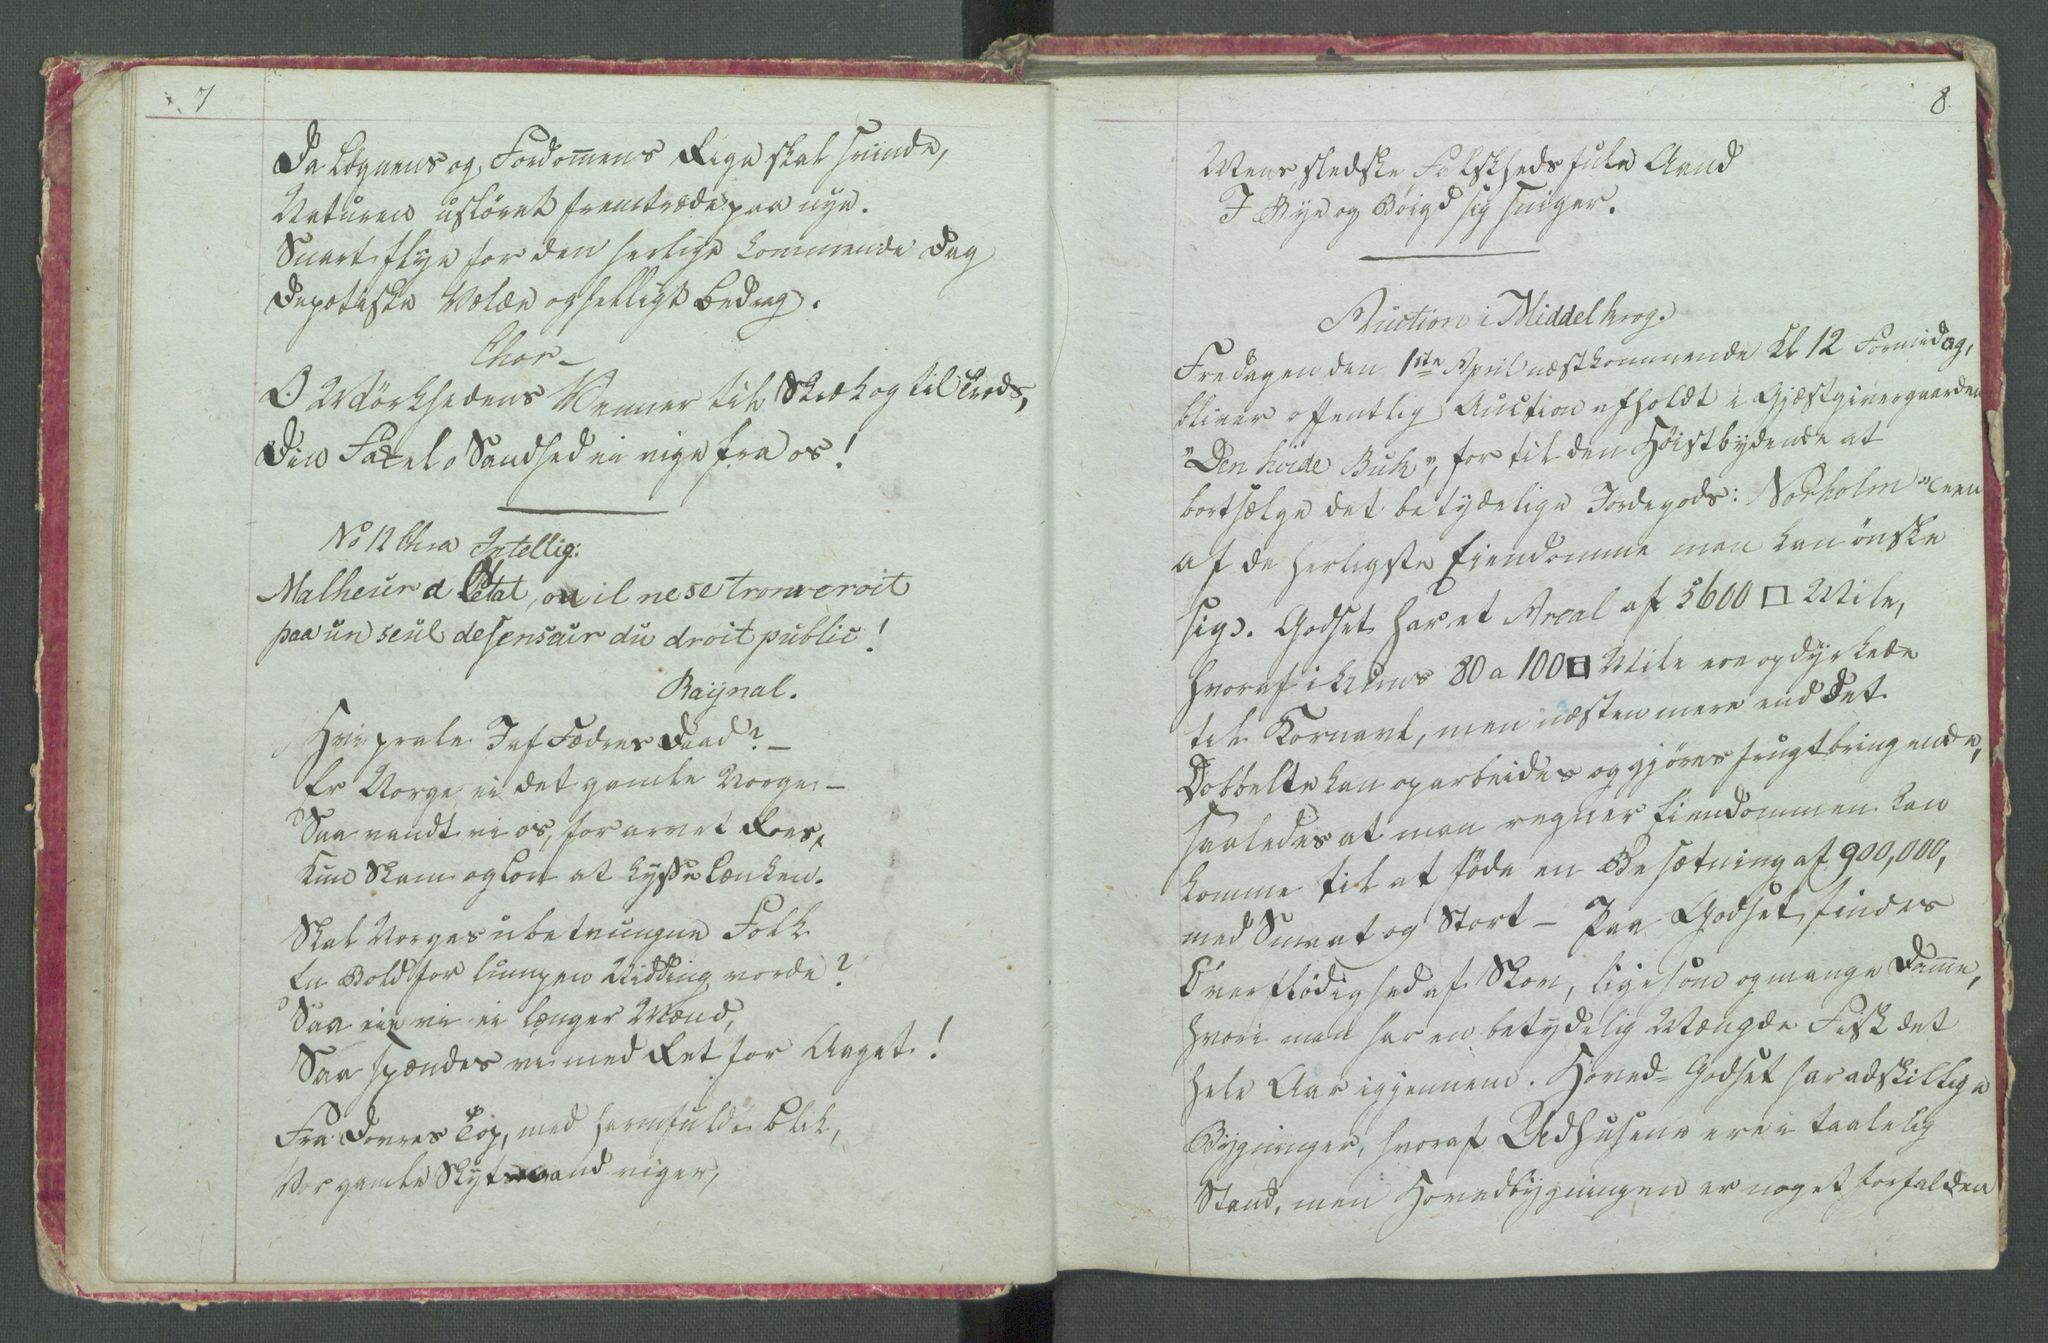 7
Da Løgnens og Fordommens Rige skal svinde,
Naturen usløret fremtræde paa nye.
Snart flye for den herlige kommende Dag
Depotiske Vælde og helligt Bedrag.
Chor –
O Mørkhedens Venner til Skræk og til Trods,
Din Fakel o Sandhed ei vige fra os!
No 12 Chra Intellig:
Malheur a l'etat, ou il ne se trouveroit
paa un seul defenseur du droit public!
Raynal.
Hvi prale I af Fædres Daad? –
Er Norge ei det gamle Norge –
Saa vandt vi os, for arvet Roes,
Kun Skam og Lov at kysse Lænken.
Skal Norges ubetvungne Folk
En Bold for lumpen Nidding vorde?
Saa eie vi ei længer Mænd,
Saa spændes vi med Ret for Aaget!
Fra Dovres Top, med harmfuld Blik,
Vor gamle Skytsaand viger,
8.
Mens slesdke Falskheds fule Aand
I Bye og Bøigd sig sniger.
Auction i Middelkrog.
Fredagen den 1ste April næstkommende Kl 12 Formidag,
bliver offentlig Auction afholdt i Gjæstgivergaarden
"Den hvide Buk", for til den Høistbydende at
bortsælge det betydelige Jordegods: Norholm" (een
af de herligste Eiendomme man kan ønske
sig). Godset har et Areal af 5600 □ Mile,
hvoraf i kuns 80 a 100 □ Mile ere opdyrkede
til Kornavl, men næsten mere end det
Dobbelte kan oparbeides og gjøres frugtbringende,
saaledes at man regner Eiendommen kan
komme til at føde en Besætning af 900,000,
med Smaat og Stort – Paa Godset findes
Overflødighed af Skov, ligesom og mange Damme,
hvori man har en betydelig Mængde Fisk det
hele Aar igjennem. Hoved-Godset har adskillige
Bygninger, hvoraf Udhusene ere i taalelig
Stand, men Hovedbygningen er noget forfalden